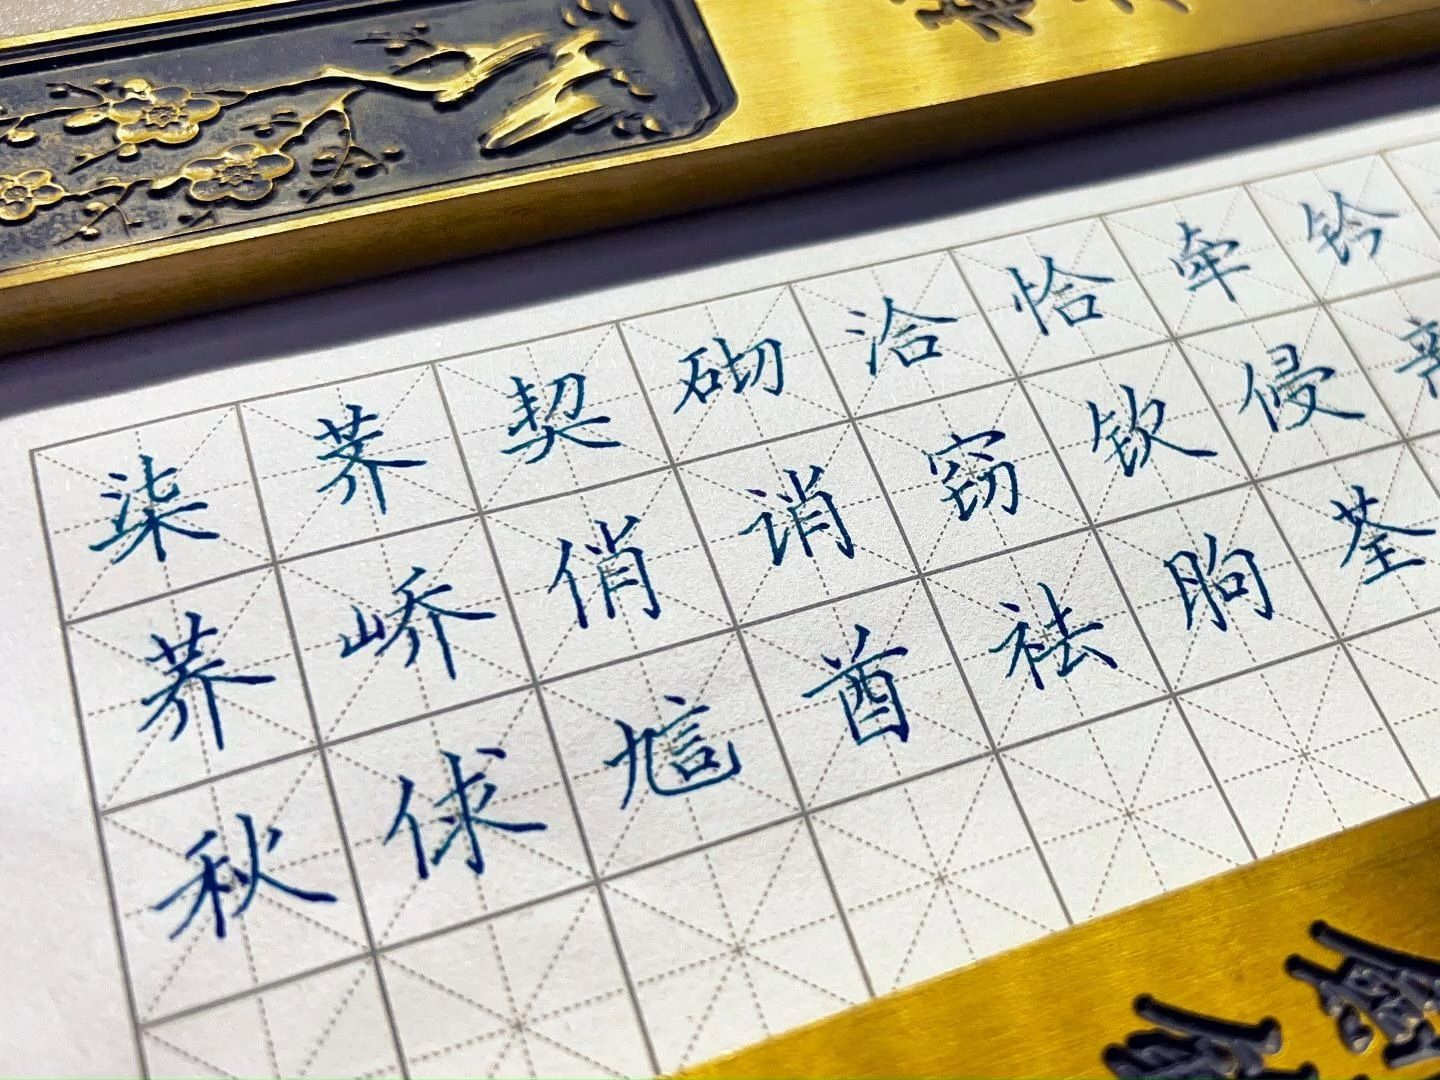 柒荠契砌洽恰牵钤
荞峤俏诮窃钦侵
秋俅訄酋祛朐荃